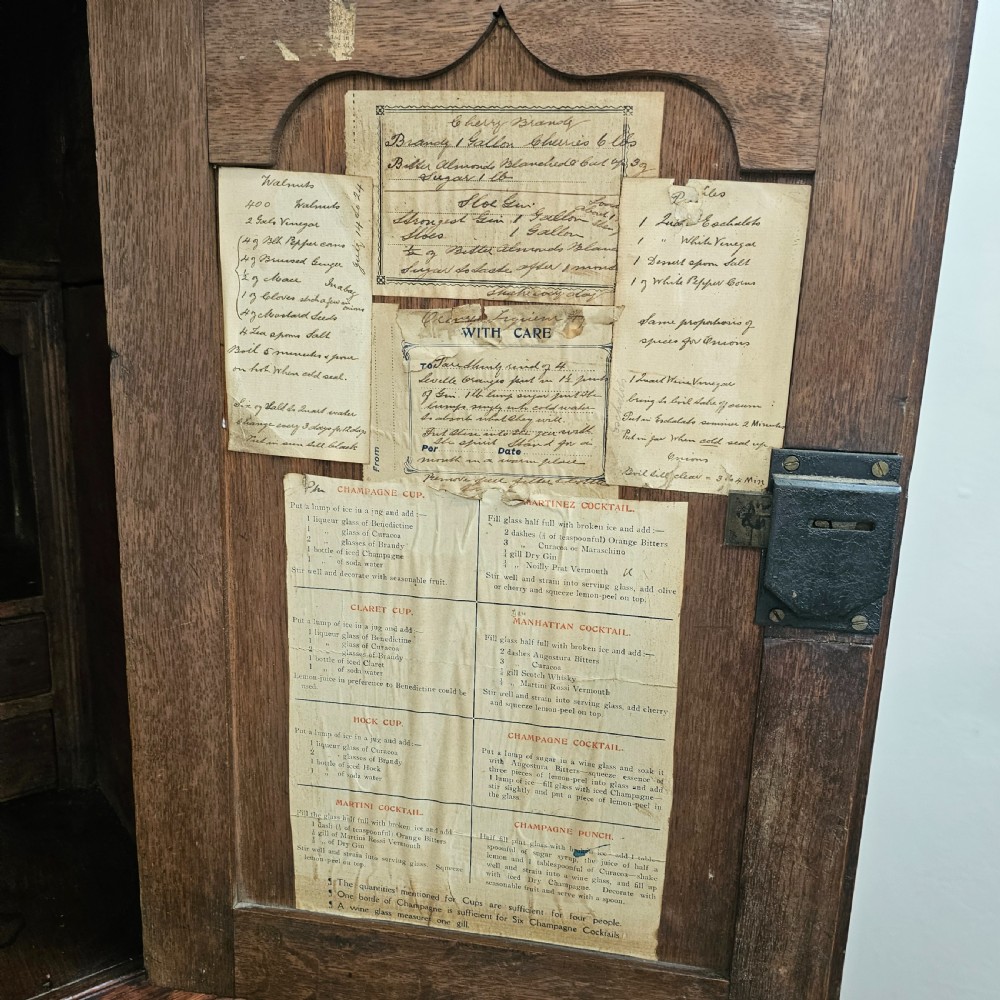 Cherry Brandy
Brandy 1 Gallon Cherries 6 lbs
Bitter Almonds Blanched & Cut up 3 oz
Sugar 1 lb
Sloe Gin.
Strongest Gin 1 Gallon
Sloes 1 Gallon
½ oz Bitter Almonds
Sugar to taste after 1 month
Shake every day
Walnuts
July 14 to 24
400 Walnuts
2 Gals Vinegar
4 oz Blk Pepper corns
4 oz Bruised Ginger
½ oz Mace In a bag
1 oz Cloves stick a few in onions
4 oz Mustard Seeds
4 Tea spoons Salt
Boil 5 minutes & pour
on hot. When cold seal.
Six oz Salt to Quart water
change every 3 days for 9 days
Put in sun till black
Orange Liqueur
WITH CARE
To Pare thinly rind of 4
Seville Oranges put in 1½ pints
of Gin. 1 lb lump sugar put the
lumps singly into cold water
to absorb what they will.
Put these into the jar with
the spirit Stand for a
Per Date
month in a warm place
From
1 Quart Eschalots
1 " White Vinegar
1 Dessert spoon Salt
1 oz White Pepper Corns
Same proportions of
spices for Onions
1 Quart Wine Vinegar
bring to boil take off scum:
Put in Eschalots simmer 2 Minutes
Put in jar When cold seal up
Onions
Boil till clear = 3 to 4 Mins
CHAMPAGNE CUP.
Put a lump of ice in a jug and add:—
1 liqueur glass of Benedictine
1 „ glass of Curacoa
2 „ glasses of Brandy
1 bottle of iced Champagne
1 „ of soda water
Stir well and decorate with seasonable fruit.
CLARET CUP.
Put a lump of ice in a jug and add:—
1 liqueur glass of Benedictine
1 „ glass of Curacoa
2 „ glasses of Brandy
1 bottle of iced Claret
1 „ of soda water
Lemon-juice in preference to Benedictine could be
used.
HOCK CUP.
Put a lump of ice in a jug and add:—
1 liqueur glass of Curacoa
2 „ glasses of Brandy
1 bottle of iced Hock
1 „ of soda water
MARTINI COCKTAIL.
Fill the glass half full with broken ice and add:—
1 dash (⅓ of teaspoonful) Orange Bitters
½ gill of Martini Rossi Vermouth
½ „ of Dry Gin
Stir well and strain into serving glass. Squeeze
lemon-peel on top.
MARTINEZ COCKTAIL.
Fill glass half full with broken ice and add:—
2 dashes (⅓ of teaspoonful) Orange Bitters
3 „ Curacoa or Maraschino
¼ gill Dry Gin
¼ „ Noilly Prat Vermouth
Stir well and strain into serving glass, add olive
or cherry and squeeze lemon-peel on top.
MANHATTAN COCKTAIL.
Fill glass half full with broken ice and add:—
2 dashes Angostura Bitters
3 „ Curacoa
¼ gill Scotch Whisky
¼ „ Martini Rossi Vermouth
Stir well and strain into serving glass, add cherry
and squeeze lemon-peel on top.
CHAMPAGNE COCKTAIL.
Put a lump of sugar in a wine glass and soak it
with Angostura Bitters—squeeze essence of
three pieces of lemon-peel into glass and add
1 lump of ice—fill glass with iced Champagne—
stir slightly and put a piece of lemon-peel in
the glass.
CHAMPAGNE PUNCH.
Half fill pint glass with broken ice—add 1 table-
spoonful of sugar syrup, the juice of half a
lemon and 1 tablespoonful of Curacoa—shake
well and strain into a wine glass, and fill up
with iced Dry Champagne. Decorate with
seasonable fruit and serve with a spoon.
¶ The quantities mentioned for Cups are sufficient for four people.
¶ One bottle of Champagne is sufficient for Six Champagne Cocktails.
¶ A wine glass measures one gill.